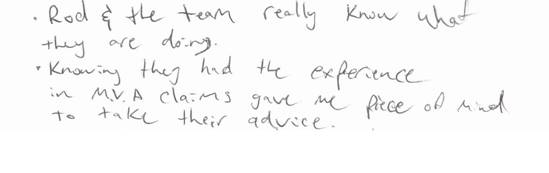 · Rod & the team really know what
they are doing.
· Knowing they had the experience
in M.V.A claims gave me piece of mind
to take their advice.